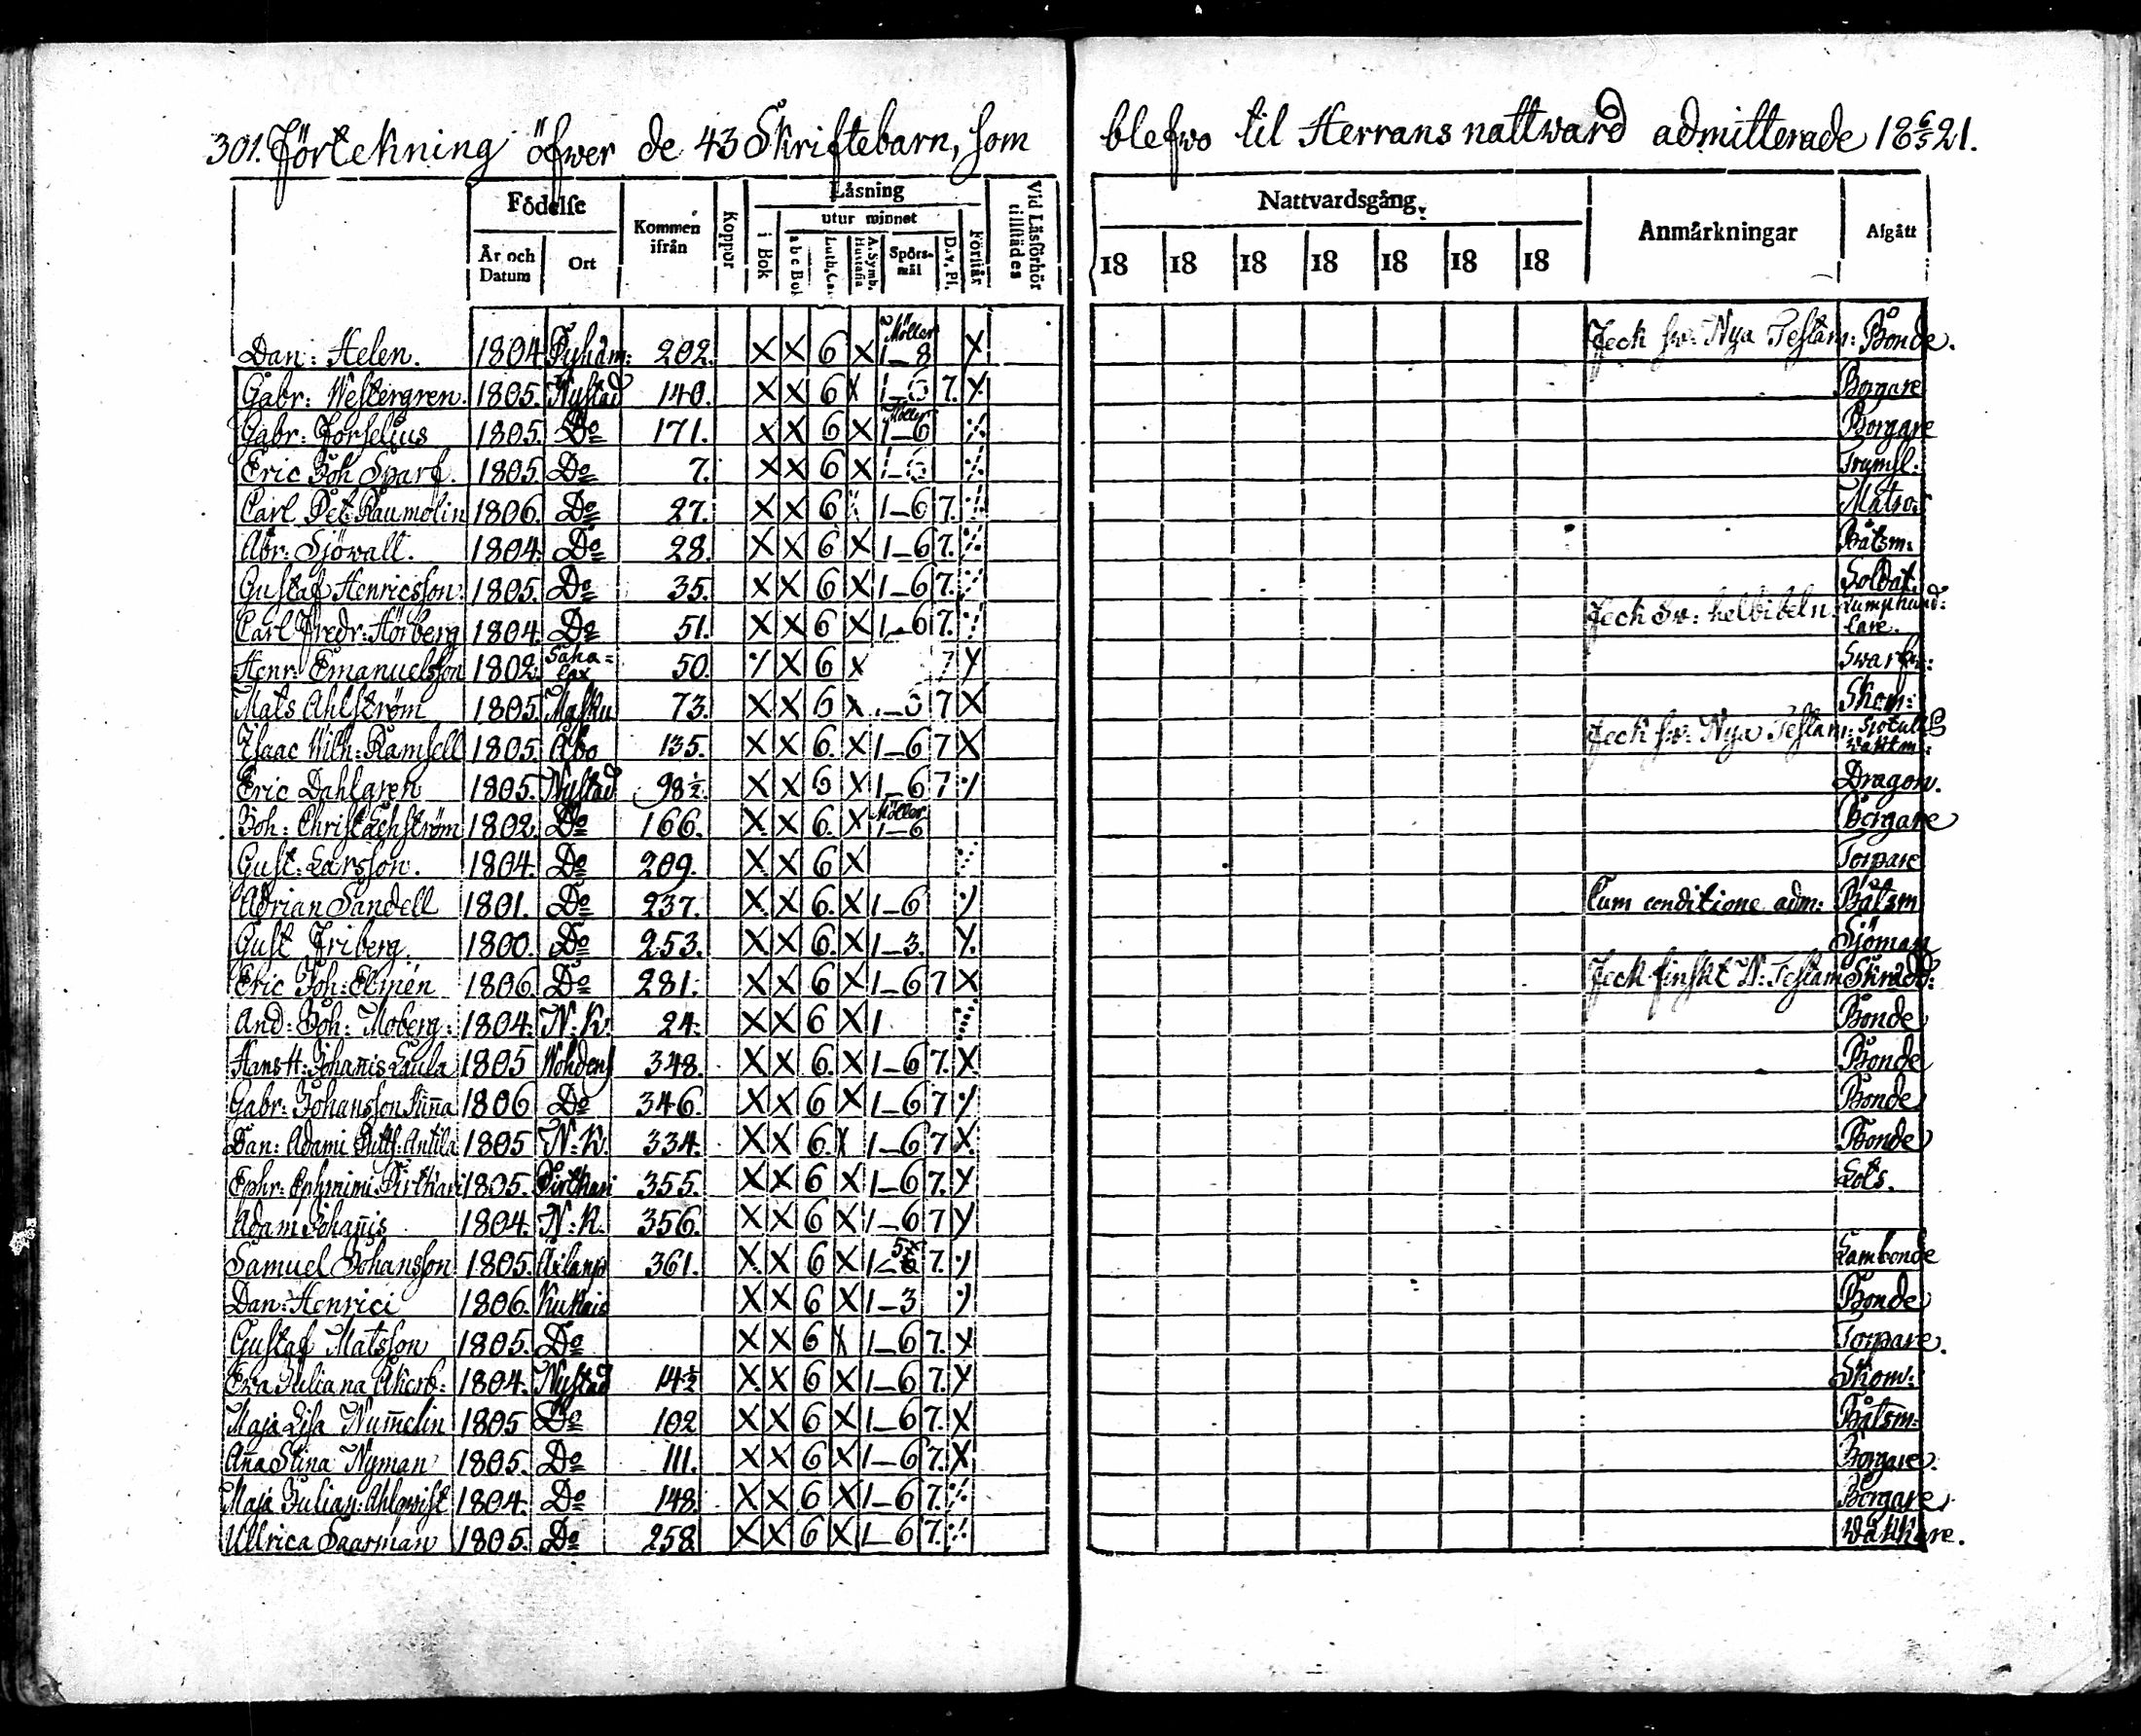 301. Förtekning öfwer de 43 Skriftebarn, som blefwo til Herrans nattward admitterade 18 6/5 21.
Födelse Kommen ifrån Koppor Läsning Förstår Vid Läsförhör tillstädes Nattvardsgång. Anmärkningar Afgått
År och Datum Ort i Bok utur minnet
a b c Bok Luth. Cat. A. Symb. Hustafla Spörs-mål Dav. Ps. 18 18 18 18 18 18 18
Dan: Helen. 1804 Pyhäm: 202. X X 6 X Möller 1-8 X Feck sw: Nya Testam: Bonde.
Gabr: Westergren. 1805. Nystad 140. X X 6 X 1-6 7. X Borgare
Gabr: Forselius 1805. Do 171. X X 6 X Möller 1-6 Borgare
Eric Joh Sparf. 1805 Do 7. X X 6 X 1-6 Trumsl:
Carl Pet. Raumolin 1806. Do 27. X X 6 1-6 7. Matro:
Abr: Sjöwall. 1804. Do 28. X X 6 X 1-6 7. Båtsm:
Gustaf Henricsson 1805. Do 35. X X 6 X 1-6 7. Soldat.
Carl Fredr: Hörberg 1804. Do 51. X X 6 X 1-6 7. Feck Sw: helbibeln.
Henr: Emanuelsson 1802. 50. X 6 X 7 X Swarfw:
Mats Ahlström 1805. Masku 73. X X 6 X 7 X Skom:
Isaac Wilh: Ramsell 1805. Åbo 135. X X 6. X 1-6 7 X Feck sw: Nya Testam: Sjötulls waktm:
Eric Dahlgren 1805. Nystad 98½. X X 6 X 1-6 7 Dragon.
Joh: Christ: Echström 1802. Do 166. X X 6. X Möller 1-6 Borgare
Gust: Larsson. 1804. Do 209. X X 6 X Torpare
Adrian Sandell 1801. Do 237. X X 6. X 1-6 Cum conditione adm: Båtsm
Gust Friberg. 1800. Do 253. X X 6. X 1-3. X. Sjöman
Eric Joh: Elmén 1806. Do 281. X X 6 X 1-6 7 X Feck finskt N: Testam Skrädd:
And: Joh: Moberg: 1804. N: K. 24. X X 6 X 1 Bonde
Hans H: Johañis Laula 1805 Wohdens 348. X X 6. X 1-6 7. X Bonde
Gabr: Johansson 1806 Do 346. X X 6 X 1-6 7 Bonde
Dan: Adami Antila 1805 N: K. 334. X X 6. X 1-6 7 X Bonde
Ephr: Ephraimi Pirtkari 1805. Pirtkari 355. X X 6 X 1-6 7. X Lots.
Adam Johañis 1804. N: K. 356. X X 6 X 1-6 7 X
Samuel Johansson 1805. 361. X X 6 X 7. Lambonde
Dan: Henrici 1806. Kukais X X 6 X 1-3 Bonde
Gustaf Matsson 1805. Do X X 6 X 1-6 7. X Torpare.
Eva Juliana Åkerb: 1804. Nystad 14½ X X 6 X 1-6 7. X Skom:
Maja Lisa Num̃elin 1805 Do 102 X X 6 X 1-6 7. X Båtsm:
Aña Stina Nyman 1805. Do 111. X X 6 X 1-6 7. X Borgare.
Maja Julian: Ahlqwist 1804. Do 148. X X 6 X 1-6 7. Borgare.
Ullrica Saarman 1805. Do 258 X X 6 X 1-6 7.